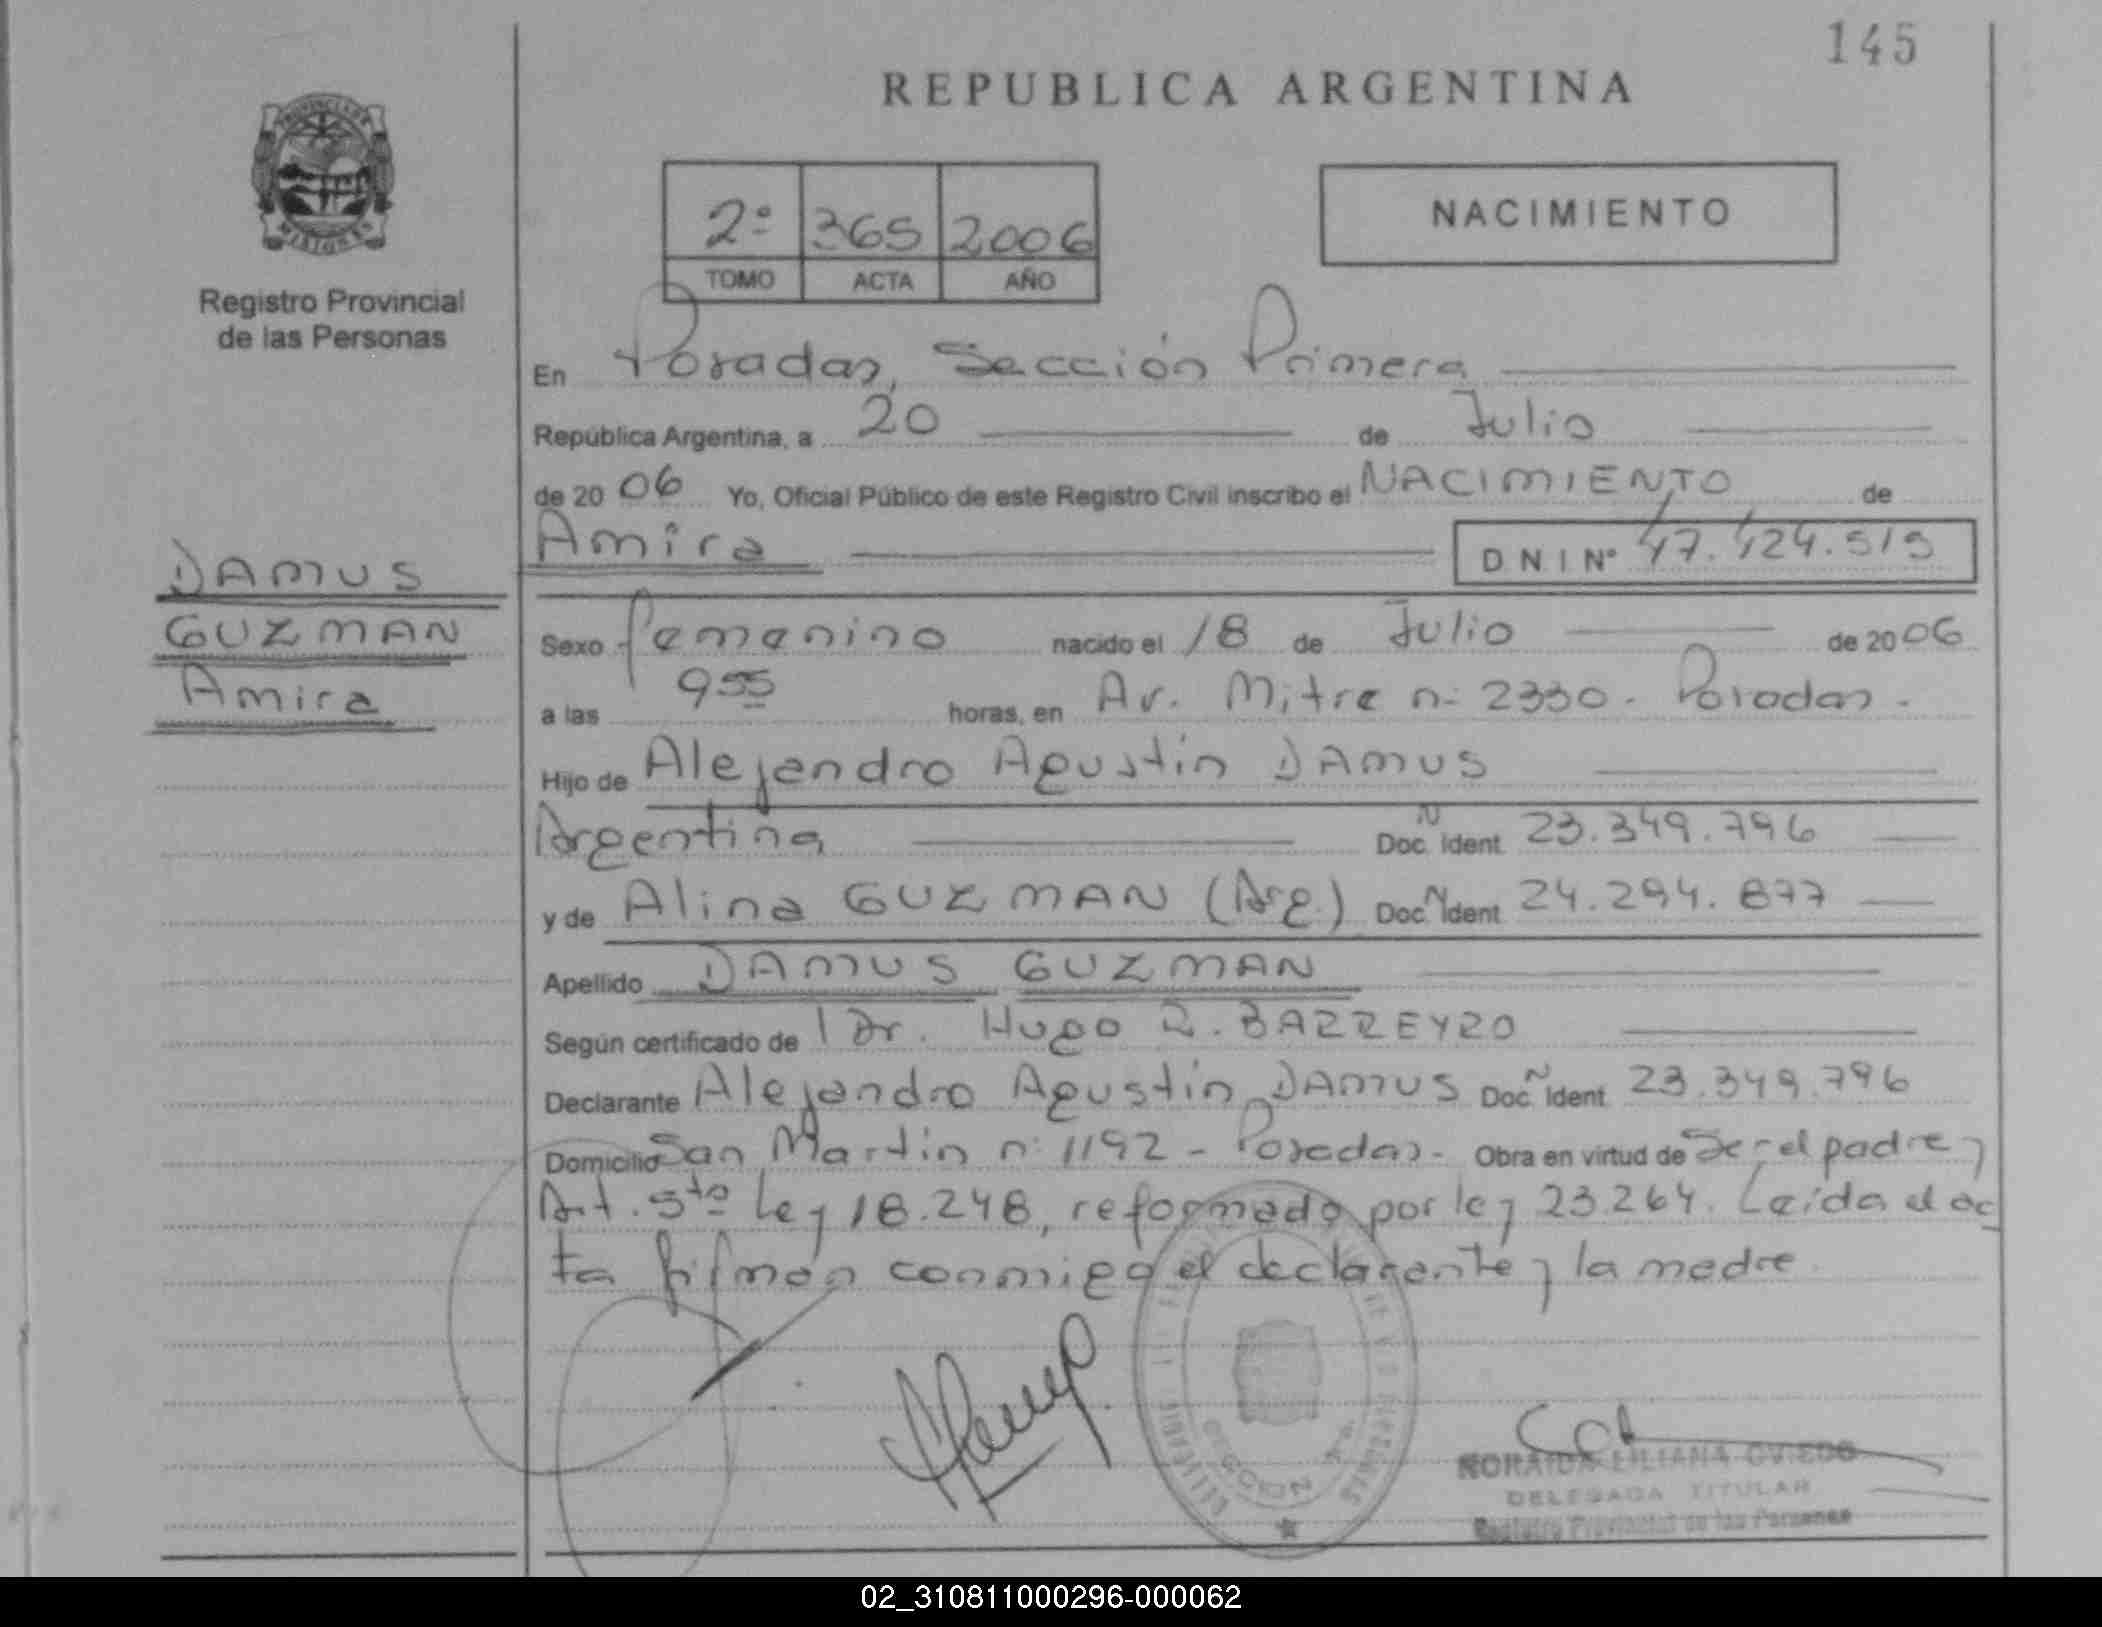 145
REPUBLICA ARGENTINA
PROVINCIA DE
MISIONES
Registro Provincial
de las Personas
2º 365 2006
TOMO ACTA AÑO
NACIMIENTO
En Posadas, Sección Primera
República Argentina, a 20 de Julio
de 2006 Yo, Oficial Público de este Registro Civil inscribo el NACIMIENTO de
Amira DNI Nº 47.424.515
DAMUS
GUZMAN
Amira
Sexo femenino nacido el 18 de Julio de 2006
a las 9 55 horas, en Av. Mitre nº 2330 - Posadas -
Hijo de Alejandro Agustín DAMUS
Argentina Doc. N Ident. 23.349.796
y de Alina GUZMAN (Arg.) Doc. N Ident. 24.294.877
Apellido DAMUS GUZMAN
Según certificado de l Dr. Hugo R. BARREYRO
Declarante Alejandro Agustín DAMUS Doc. N Ident. 23.349.796
Domicilio San Martín nº 1192 - Posadas - Obra en virtud de ser el padre y
Art. 5to Ley 18.248, reformado por ley 23.264. Leída el ac
ta firman conmigo el declarante y la madre
NORAIDA LILIANA OVIEDO
DELEGADA TITULAR
Registro Provincial de las Personas
02_310811000296-000062